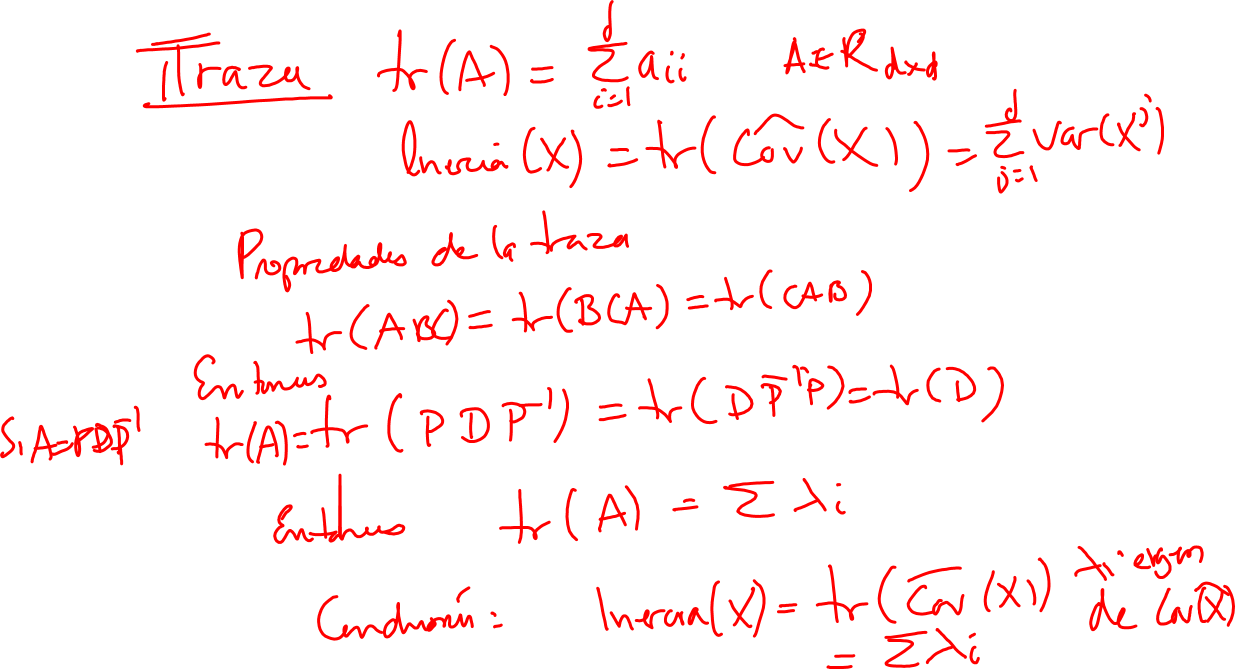 Traza tr(A) = \sum_{i=1}^{d} a_{ii} A ∈ R_{d×d}
Inercia (X) = tr(\widehat{Cov}(X)) = \sum_{j=1}^{d} Var(X^j)
Propiedades de la traza
tr(ABC) = tr(BCA) = tr(CAB)
Entonces
Si A = PDP^{-1} tr(A) = tr(PDP^{-1}) = tr(DP^{-1}P) = tr(D)
Entonces tr(A) = Σ λ_i
Conclusión: Inercia(X) = tr(\widehat{Cov}(X)) λ_i eigen
= Σ λ_i de \widehat{Cov}(X)